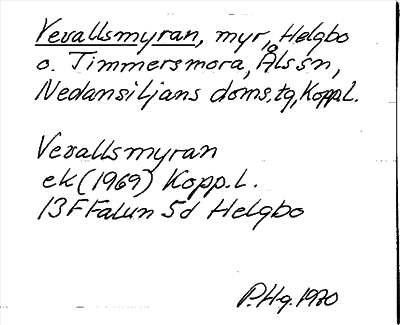 Vevallsmyran, myr, Helgbo
o. Timmersmora, Ål ssn,
Nedansiljans doms.tg, Kopp.L.
Vevallsmyran
ek (1969) Kopp.L.
13F Falun 5d Helgbo
P.Hg. 1970